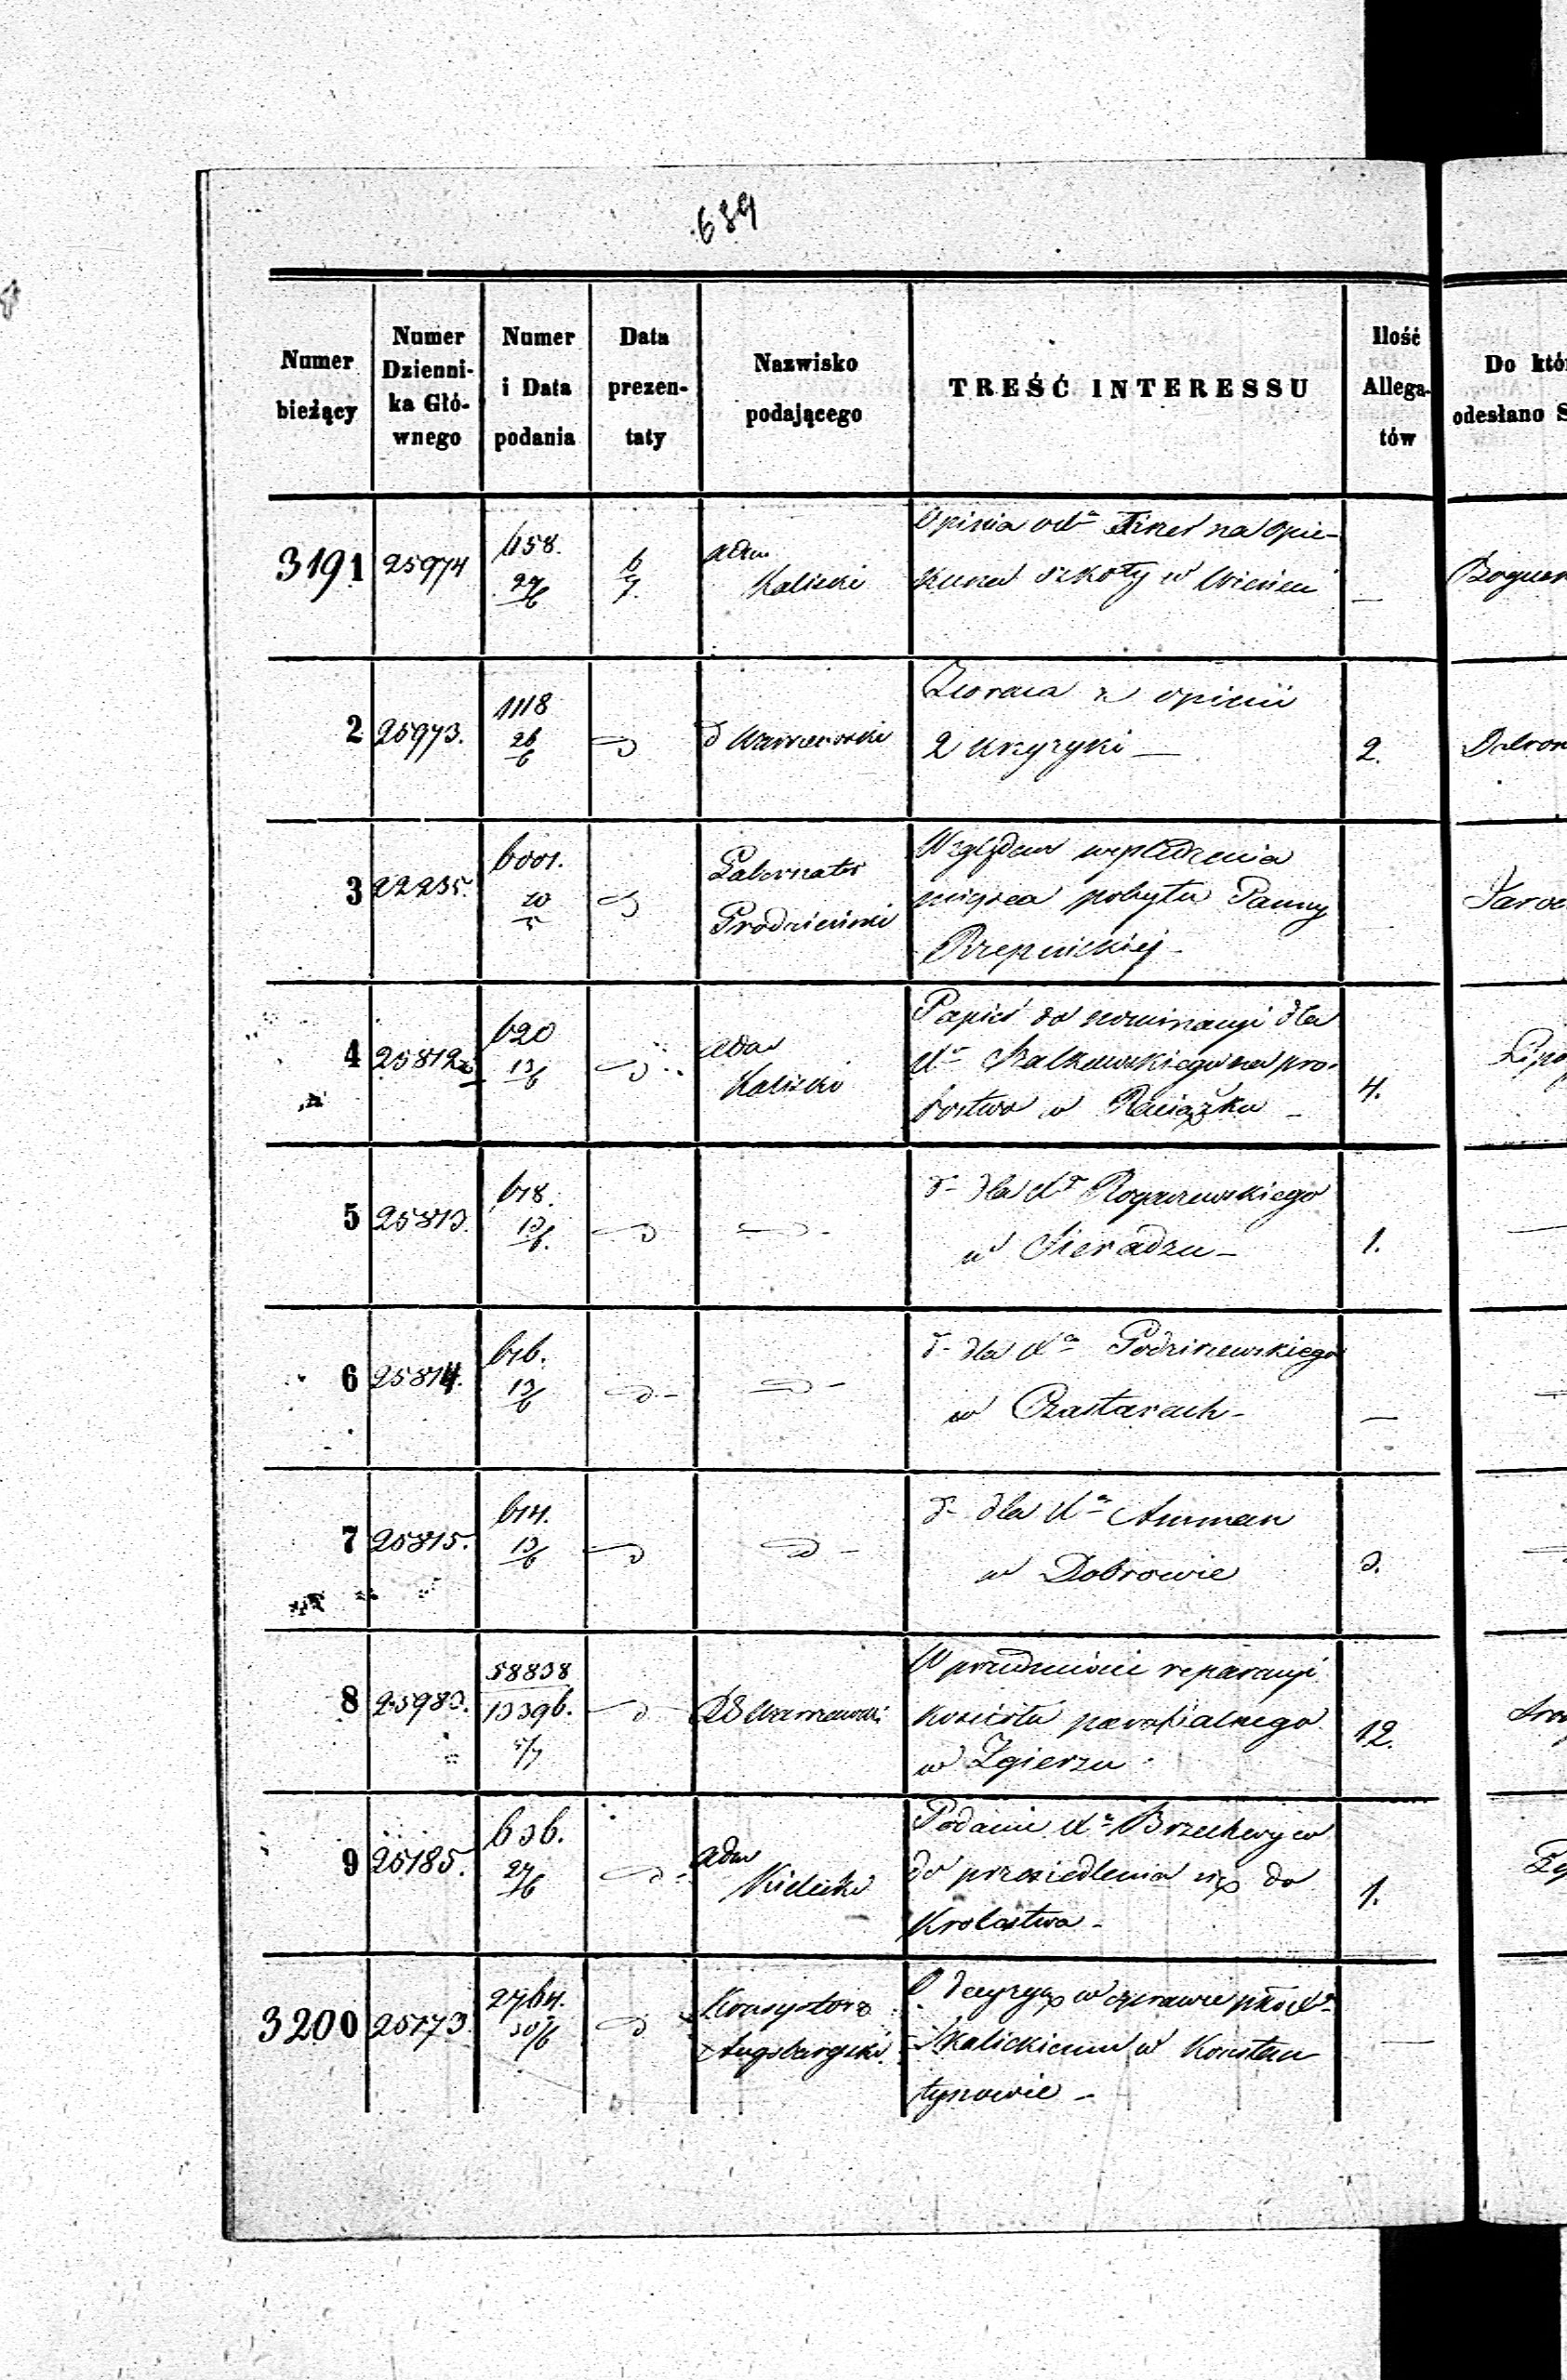 689
Numer bieżący | Numer Dzienni-ka Głó-wnego | Numer i Data podania | Data prezen-taty | Nazwisko podającego | TREŚĆ INTERESSU | Ilość Allega-tów | Do któ odesłano S
3191 | 25974 | 658. 27/6 | 6/7. | adm Kaliski | Opinia od na Opie-
kuna szkoły w | —
2 | 25973. | 1118 26/6 | d | d Warszawski | Zwraca z opinii
2 krzyżyki — | 2.
3 | 22235. | 6001. 20/5 | d | Gubernator Grodzieński | Względem wyśledzenia
miejsca pobytu Panny
Rzepnickiej -
4 | 25812 | 620 13/6 | d | adm Kaliski | Papiér do nominacyi dla
na pro-
bostwo w Raciążku - | 4.
5 | 25813. | 618. 13/6. | d | d - | d- dla Xa
w Sieradzu - | 1.
6 | 25814. | 616. 13/6 | d - | d - | d- dla Xa
w Czastarach - | —
7 | 25815. | 614. 13/6 | d | d - | d- dla Xa Amman
w Dobrowie | 3.
8 | 25983. | 58838 13396. 5/7 | d | RG Warszawski | W przedmiocie reparacyi
kościoła parafialnego
w Zgierzu - | 12.
9 | 25185. | 636. 27/6 | d - | adm Kielecki | Podanie Xa Brzechwy
do przesiedlenia się do
Królestwa - | 1.
3200 | 25173 | 2764. 30/6 | d | Konsystorz Augsburgski. | O decyzyę w sprawie
Skalickiemu w Konstan
tynowie - | —